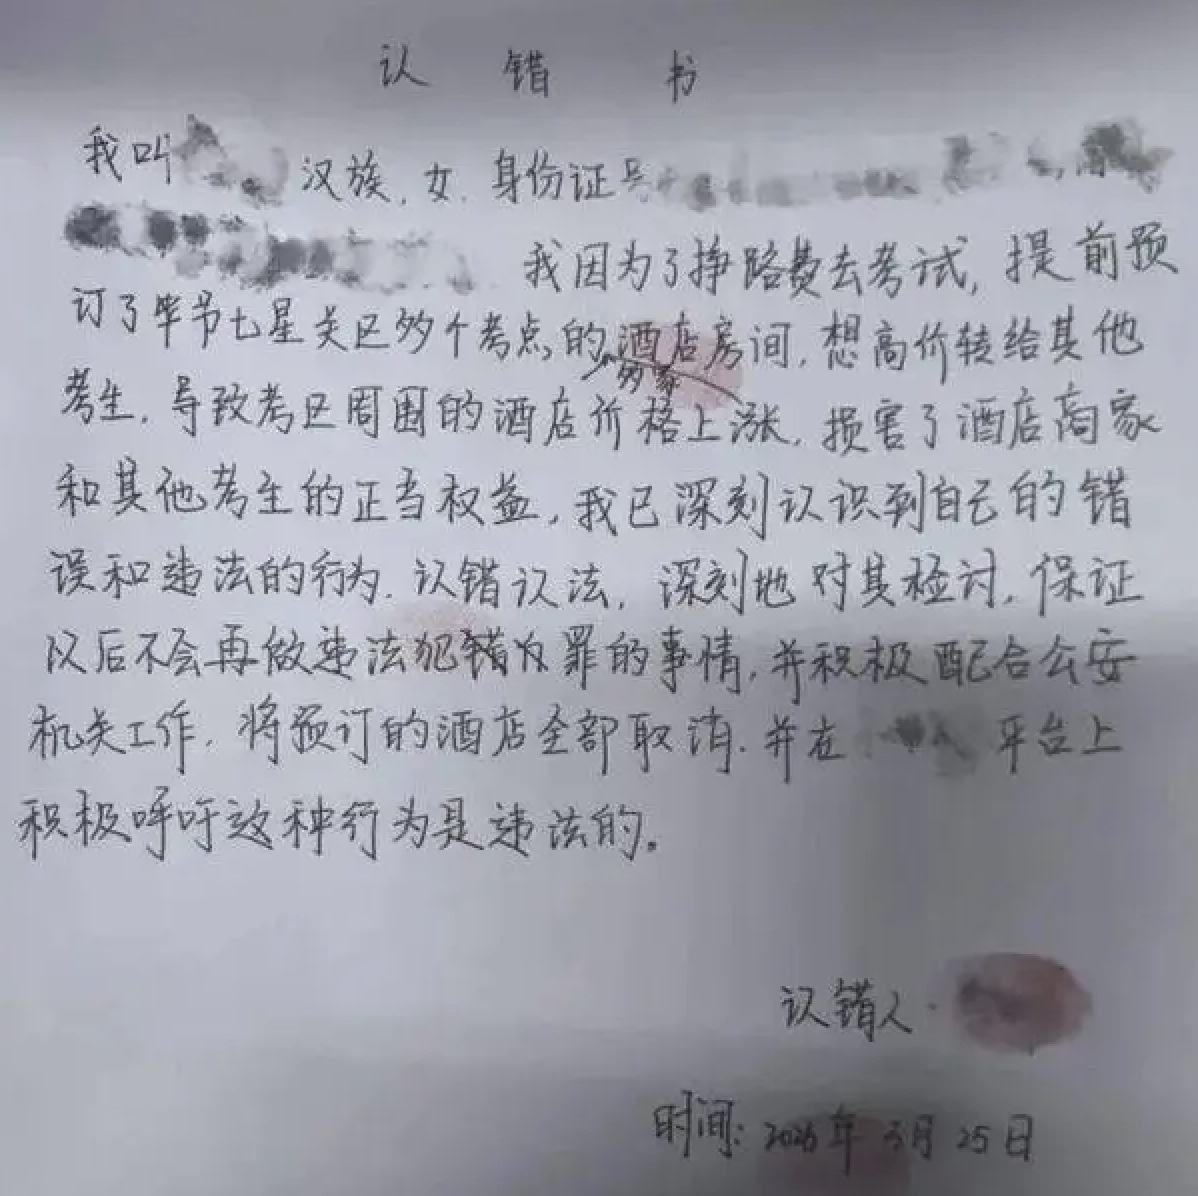 认错书
我叫 汉族,女.身份证号
我因为了挣路费去考试,提前预
订了毕节七星关区多个考点的多家酒店房间,想高价转给其他
考生,导致考区周围的酒店价格上涨,损害了酒店商家
和其他考生的正当权益,我已深刻认识到自己的错
误和违法的行为.认错认法,深刻地对其检讨.保证
以后不会再做违法犯错及罪的事情,并积极配合公安
机关工作.将预订的酒店全部取消.并在 平台上
积极呼吁这种行为是违法的。
认错人:
时间: 年3月25日